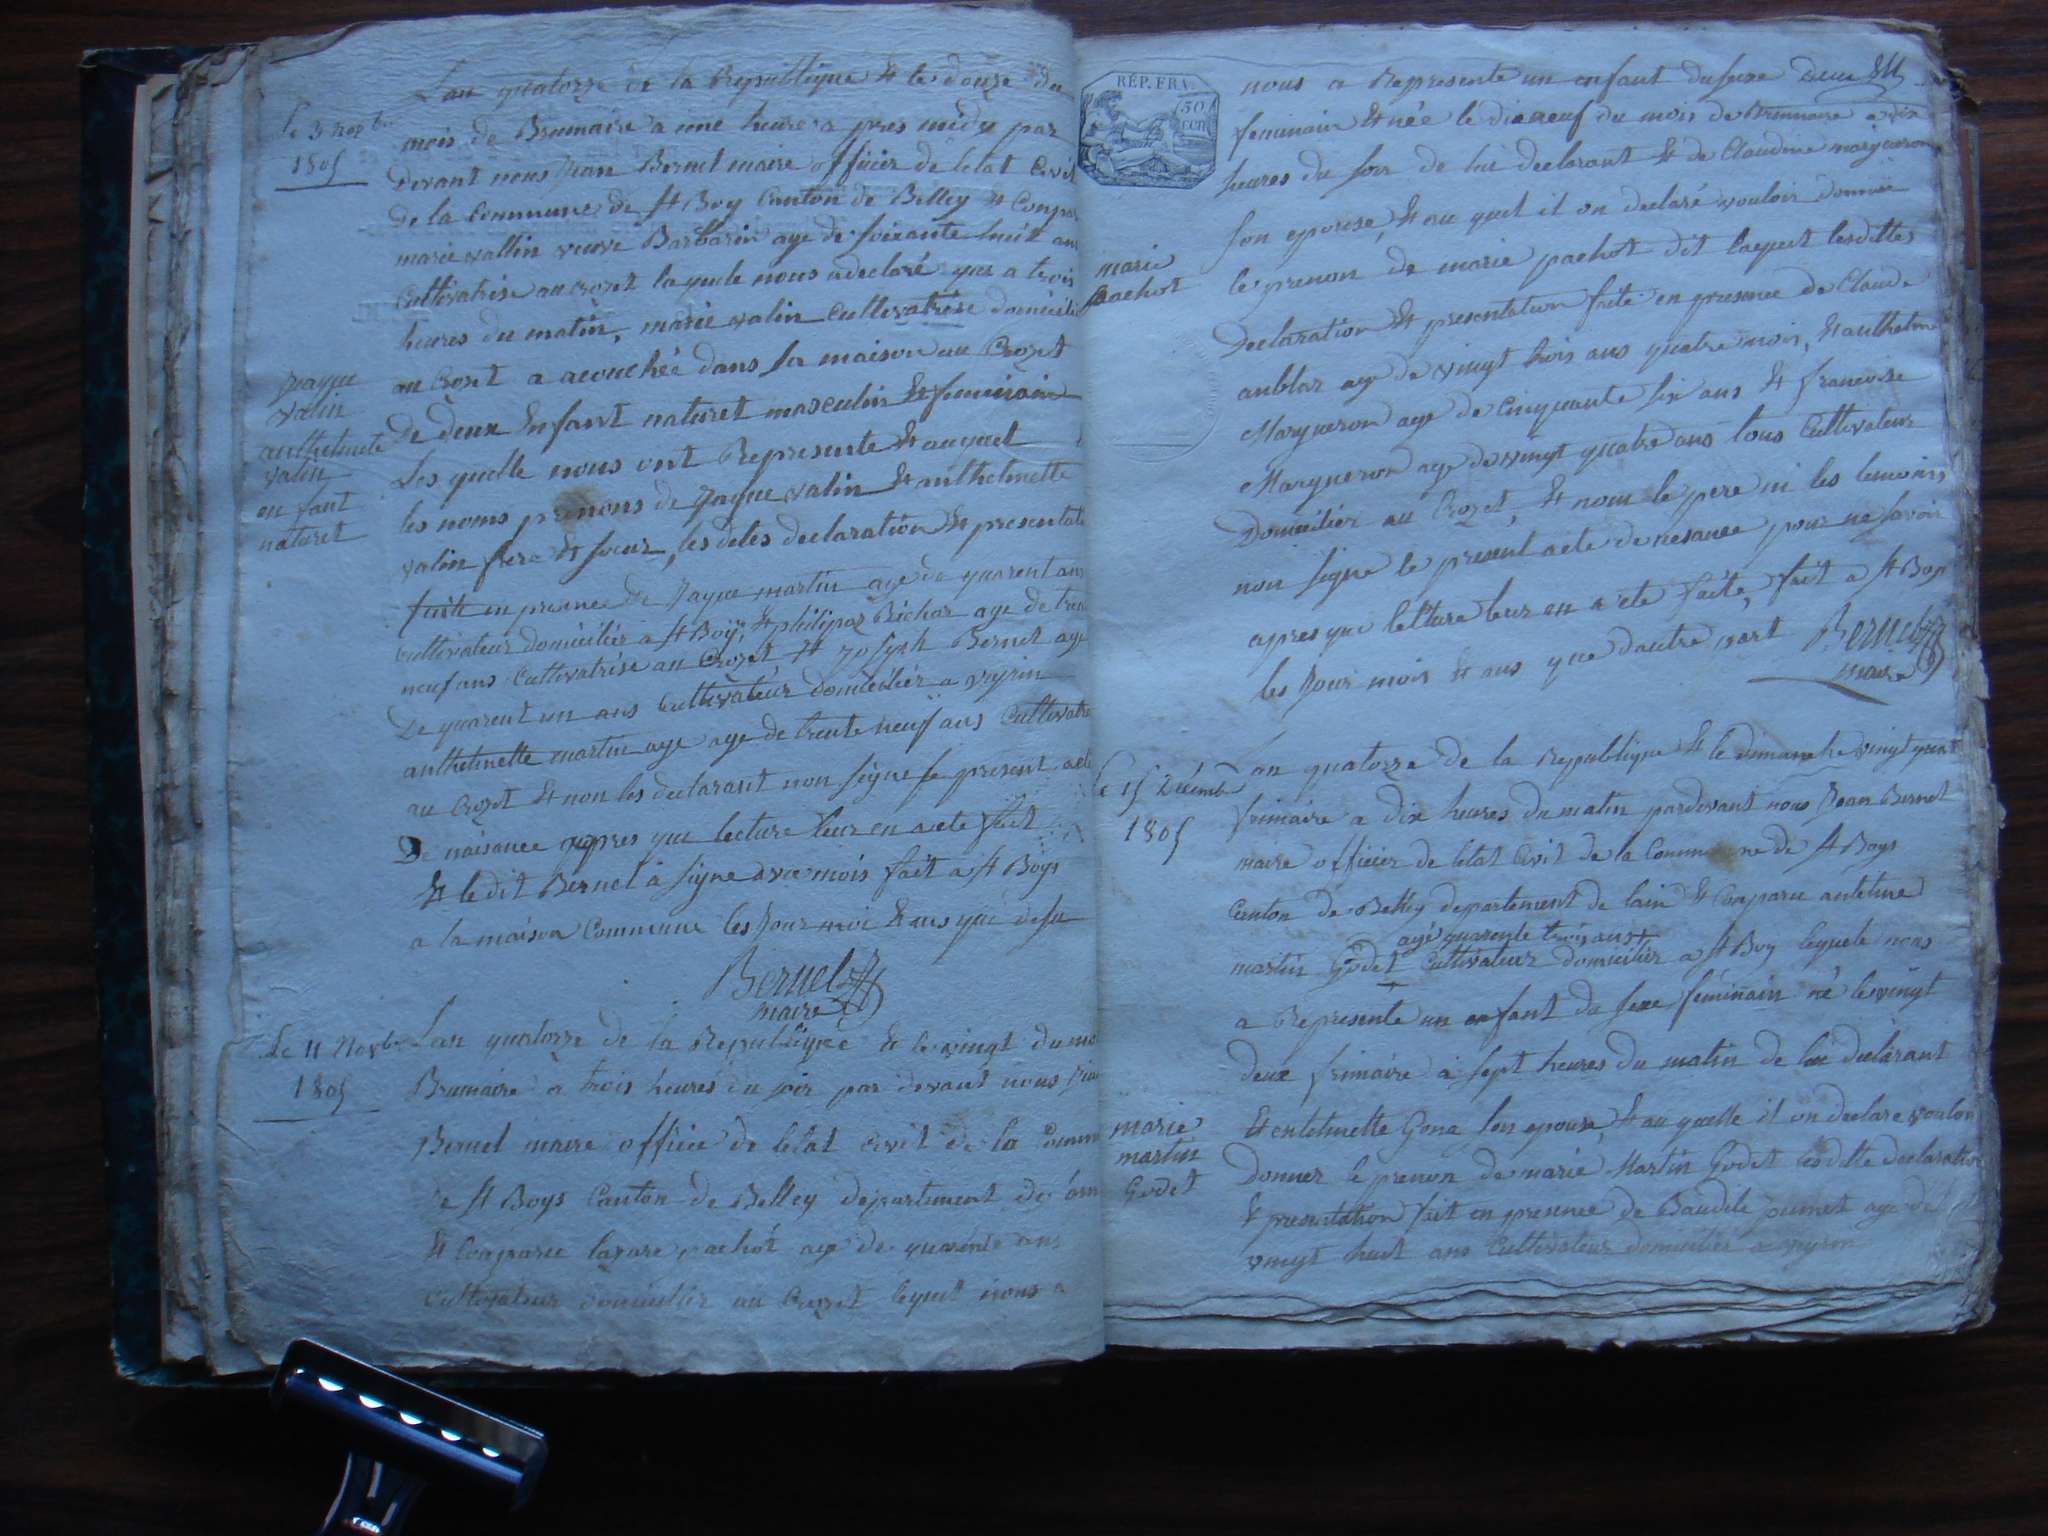 Le 3 nov bre
1805
Lan quatorze de la Republique & le douze du
mois de Brumaire a une heure a pres midy par
devant nous Jean Bernet maire officier de letat Civil
de la Commune de St Boy Canton de Belley & Compar
marie vallin veuve Barbarin age de soixante huit ans
Cultivatrise au crozet laquele nous a declaré que a trois
heures du matin, marie valin Cultivatrise domicilie
au Crozt a acouchée dans sa maison au Crozet
De deux Enfant naturet masculin & feminain
Les quelle nous ont Represente & auquel
les noms prenons de Jaque valin & anthelmette
valin frere & soeur, les dites declaration & presentati
faite en presence de Jaque martin age de quarent ans
cultivateur domicilier a St Boÿs, & philipaz Richar age de trent
neuf ans Cultivatrise au Crozet & Joseph Bernet age
De quarent un ans Cultivateur domicilier a veyrin
anthelmette martin aye age de trente neuf ans Cultivatri
au Crozet & non les declarant non signe le present acte
De naisance appres que lecture leur en a ete fait
& le dit Bernet à signe avec mois fait a St Boys
a la maison Commune les Jour moi & ans que desu
Bernet
maire
jaque
valin
anthelmete
valin
en fant
naturet
Le 11 Novbre
1805
Lan quatorze de la Republique & le vingt du mo
Brumaire a trois heures du soir par devant nous jean
Bernet maire officie de letat Civil de la Commu
de St Boys Canton de Belley departement de lain
& Comparu lazare pachot age de quarente ans
Cultivateur domicilier au Crozet lequel nous a
RÉP. FRA.
50
CEN
nous a Represente un enfant du sexe
feminain & née le dixneuf du mois de Brumaire a dix
heures du soir de lui declarant & de Claudine marqueron
son epouse, & au quel il on declaré vouloir donnér
le prenon de marie pachot dit laquet lesdittes
Declaration & presentation faite en presence de Claude
anblar age de vingt trois ans quatre mois, & anthelme
Marqueron age de Cinquante six ans & francoise
Marqueron age de vingt quatre ans tous Cultivateur
Domicilier au Crozet, & nom le pere ni les temoins
non signe le present acte de nesance pour ne savoir
apres que lecture leur en a ete faite, fait a St Boy
les Jour mois & ans que dautre part Bernet
maire
marie
pachot
Le 15 Décemb
1805
Lan quatorze de la Republique & le dimanche vingt quat
frimaire a dix heures du matin pardevant nous Jean Bernet
maire officier de letat Civil de la Commune de St Boys
Canton de Belley departement de lain & Comparu anteline
agé quarente trois ans
martin Godet Cultivateur domicilier a St Boy lequele nous
a Represente un enfant du sexe féminain né le vingt
deux frimaire a sept heures du matin de lui declarant
& entelmette Gona son epouse, & au quelle il on declare voulon
donner le prenon de marie Martin Godet lesditte declaration
& presentation fait en presence de Baudile pumet age de
vingt huit ans Cultivateur domicilier a veyron
marie
martin
Godet